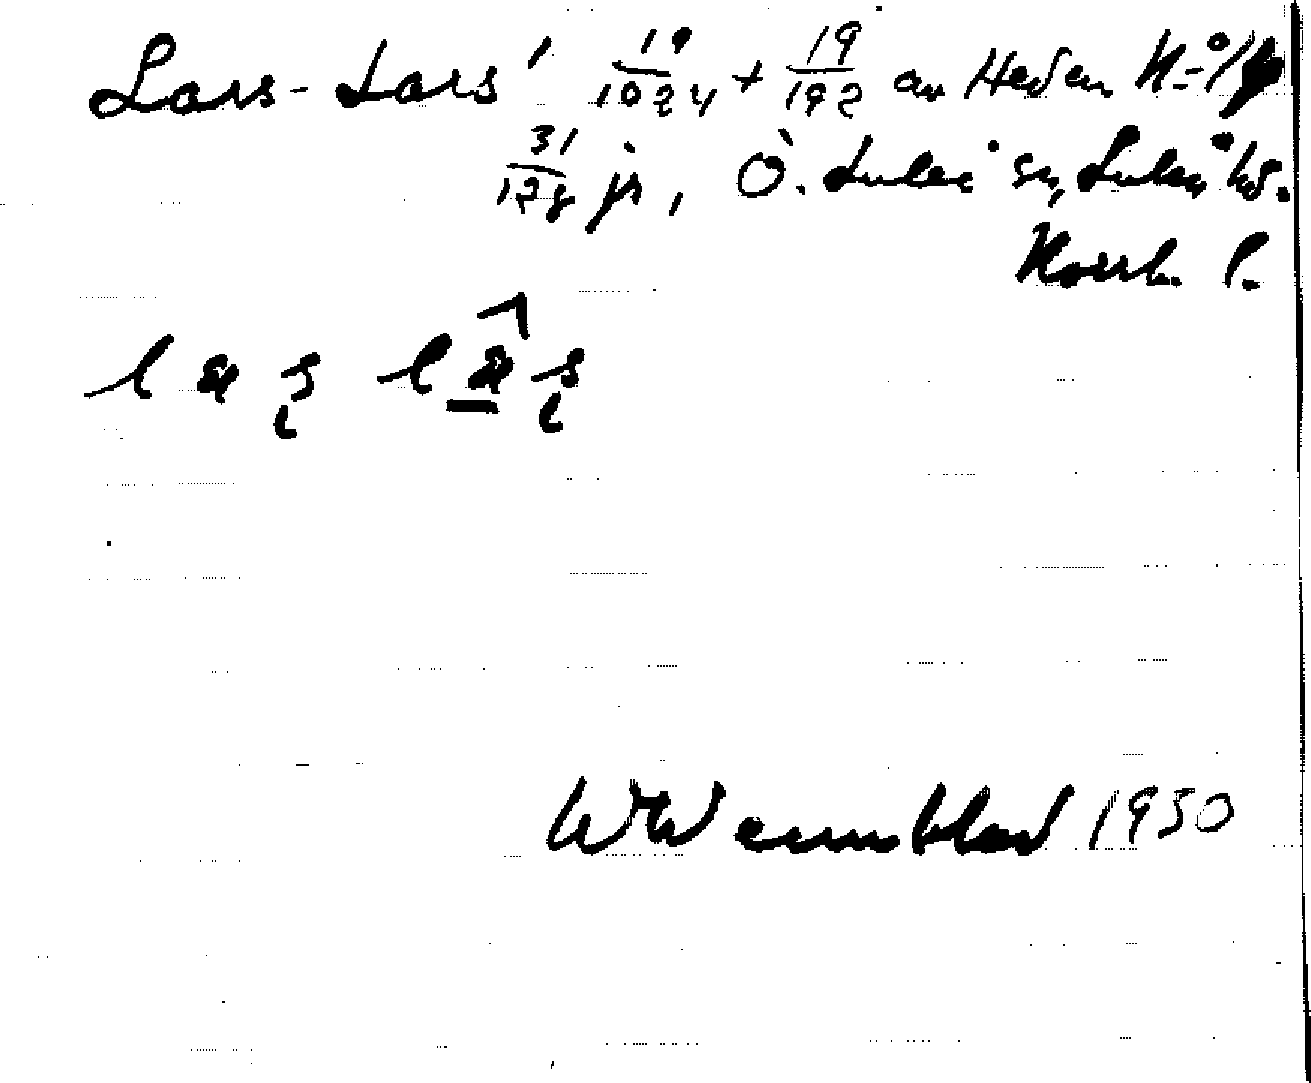 Lars-Lars' 19/1024 + 19/192 av Heden N:o
31/128 jr, Ö. Luleå sn, Luleå hd.
Norrb. l.
W Wennblad 1930